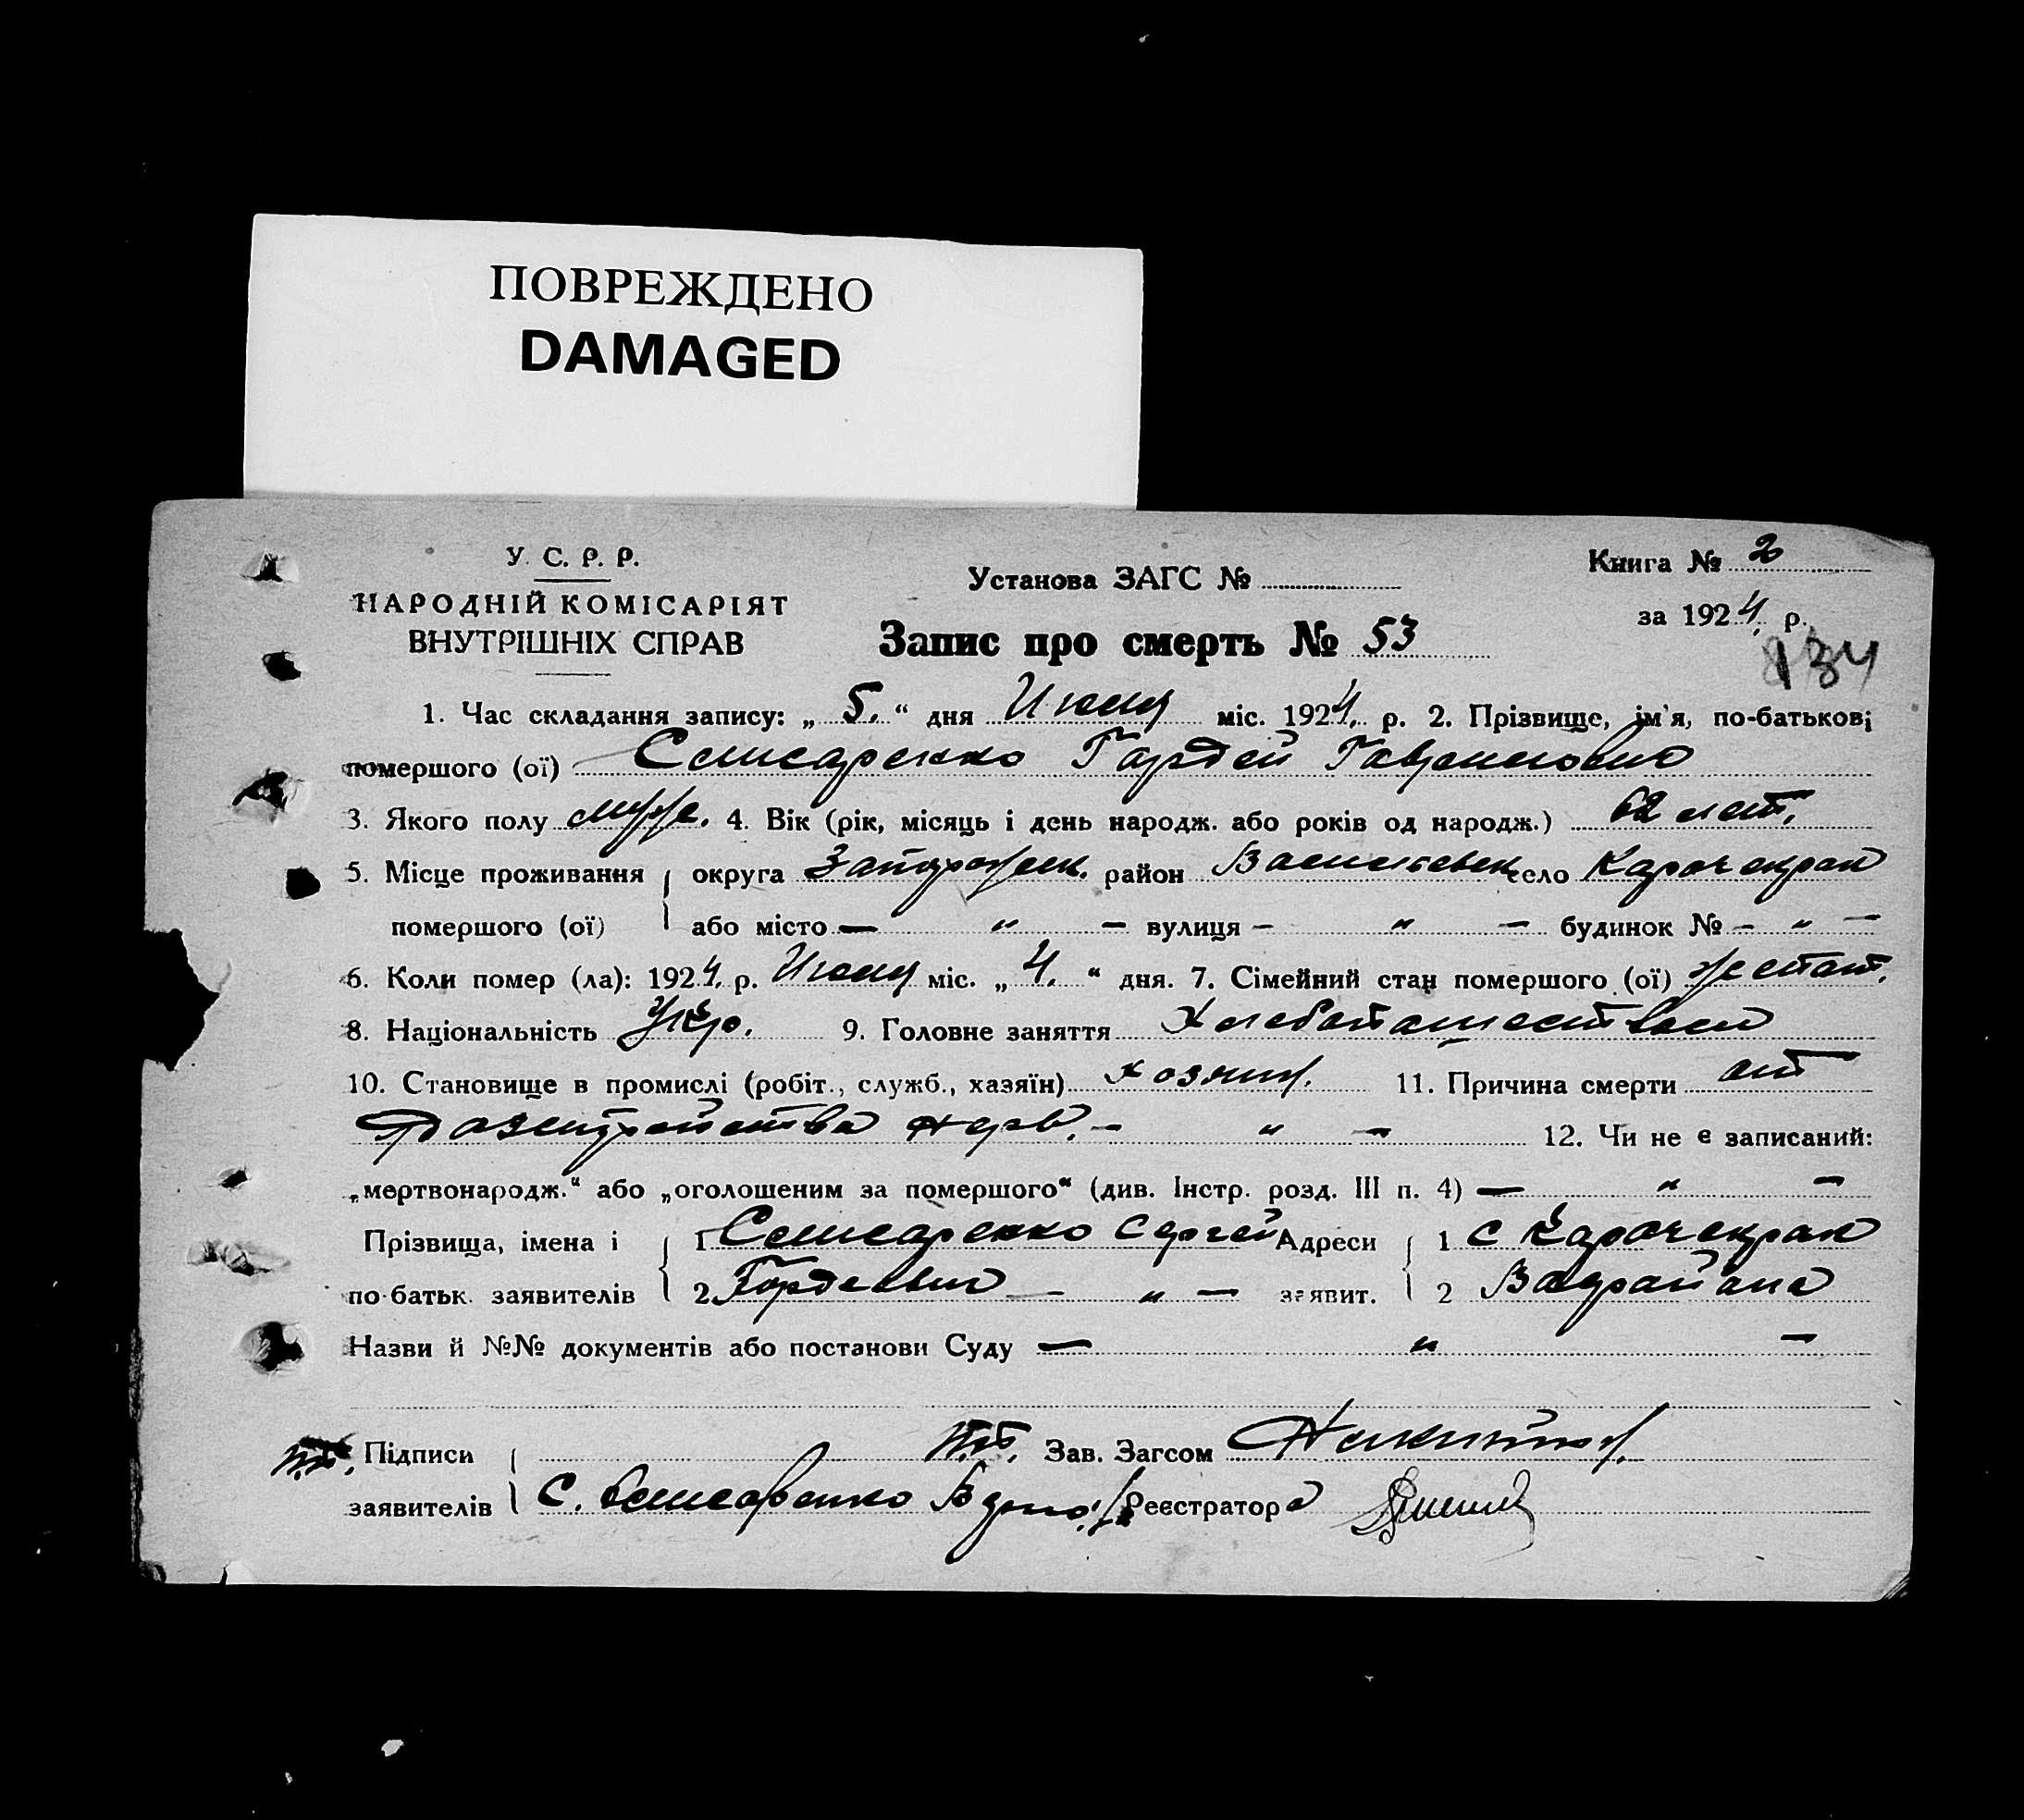 ПОВРЕЖДЕНО
DAMAGED
У. С. Р. Р.
НАРОДНІЙ КОМІСАРІЯТ
ВНУТРІШНІХ СПРАВ
Установа ЗАГС №
Книга № 2
за 1924 р.
Запис про смерть № 53
134
1. Час складання запису: „ 5. “ дня Июля міс. 1924. р. 2. Прізвище, ім'я, по-батькові
помершого (ої) Слисаренко Гордей
3. Якого полу муж. 4. Вік (рік, місяць і день народж. або років од народж.) 62 лет.
5. Місце проживання округа Запорожск. район Васильевск село Карачекрак
помершого (ої) або місто — „ — вулиця — „ — будинок № — „ —
6. Коли помер (ла): 1924. р. Июля міс. „ 4. “ дня. 7. Сімейний стан помершого (ої) женат.
8. Національність Укр. 9. Головне заняття
10. Становище в промислі (робіт., служб., хазяїн) хозяин. 11. Причина смерти от
нерв. — „ — 12. Чи не є записаний:
„мертвонародж.“ або „оголошеним за помершого“ (див. Інстр. розд. III п. 4) — „ —
Прізвища, імена і 1 Слисаренко Сергей Адреси 1 с Карачекрак
по-батьк. заявителів 2. Гордеевич — „ — заявит. 2
Назви й №№ документів або постанови Суду — „ —
Підписи Зав. Загсом
заявителів С. Слисаренко Реєстратор